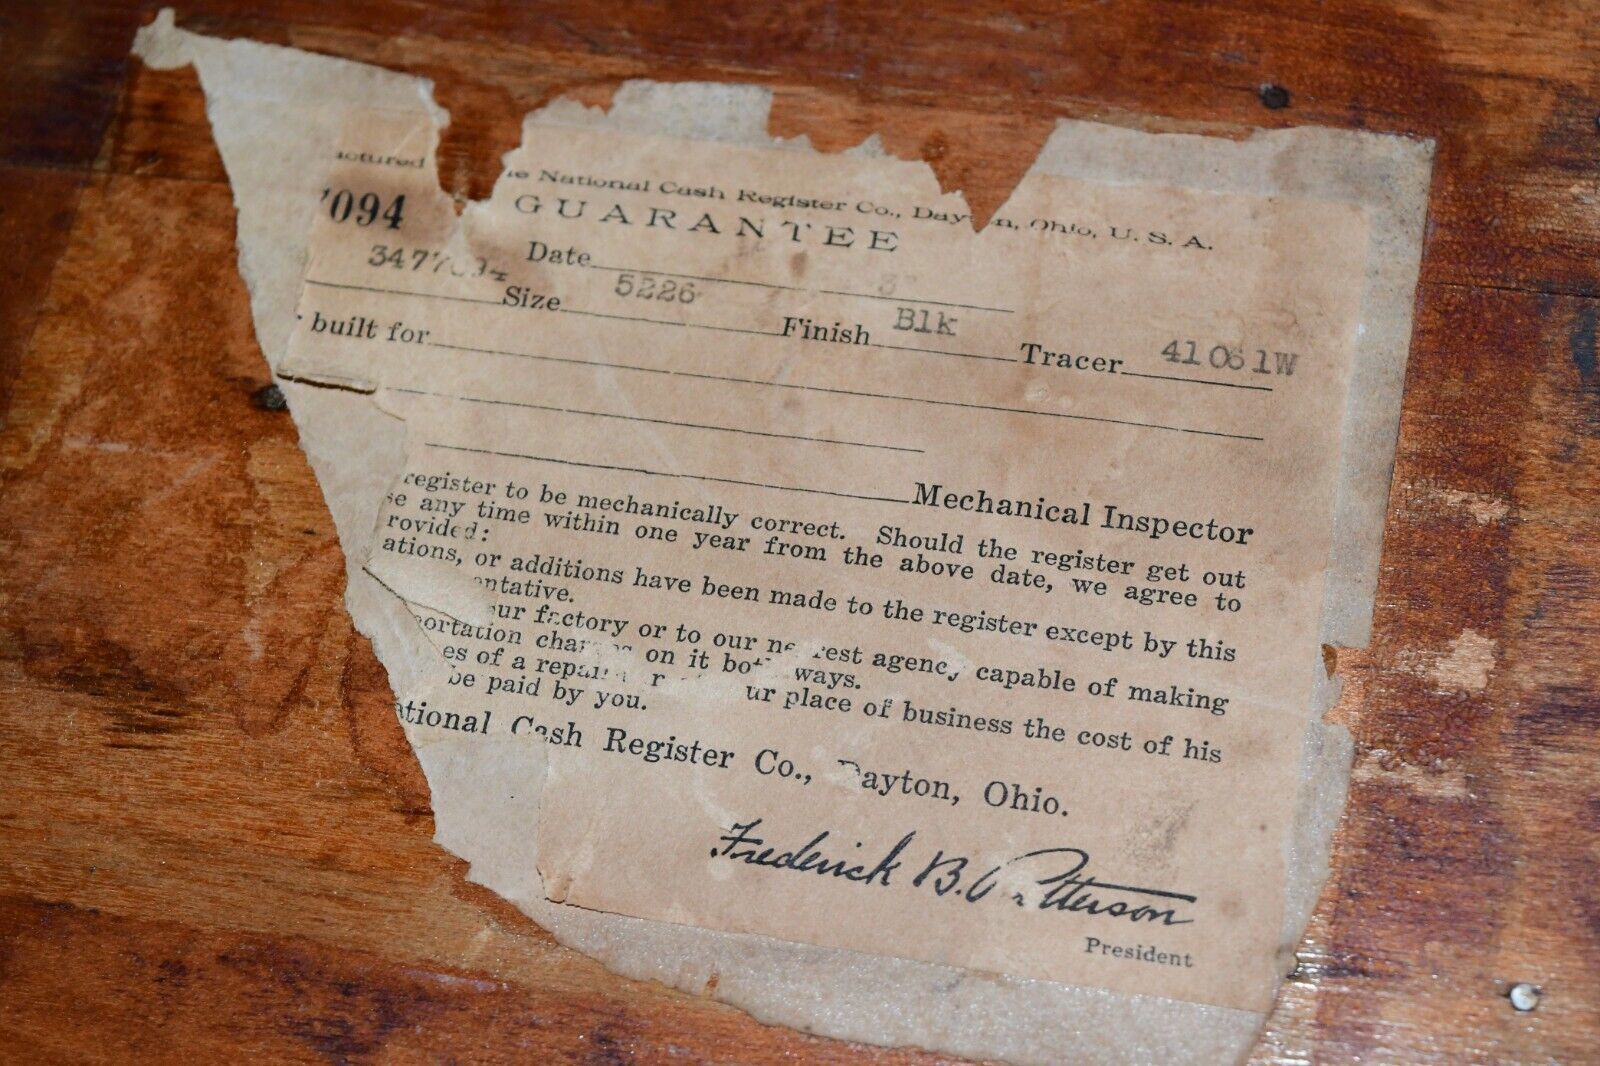 actured      he National Cash Register Co., Dayton, Ohio, U. S. A.
7094 GUARANTEE
Date 3
3477094 Size 5226 Finish Blk Tracer 41061W
built for
Mechanical Inspector
register to be mechanically correct. Should the register get out
se any time within one year from the above date, we agree to
rovided:
ations, or additions have been made to the register except by this
entative.
our factory or to our nearest agency capable of making
portation charges on it both ways.
es of a repair ur place of business the cost of his
be paid by you.
ational Cash Register Co., Dayton, Ohio.
Frederick B. Patterson
President